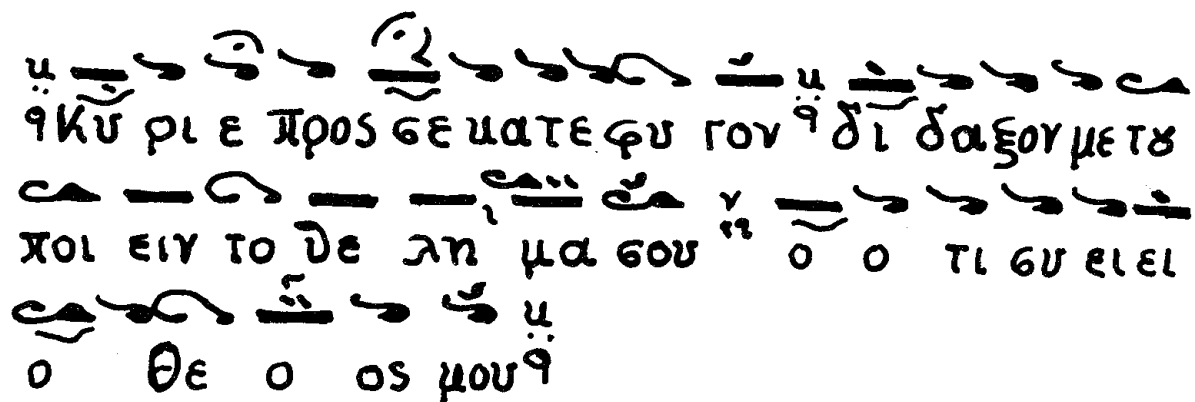 Κυ ρι ε προς σε κα τε φυ γον δι δα ξον με του
ποι ειν το θε λη μα σου ο ο τι συ ει ει
ο Θε ο ος μου